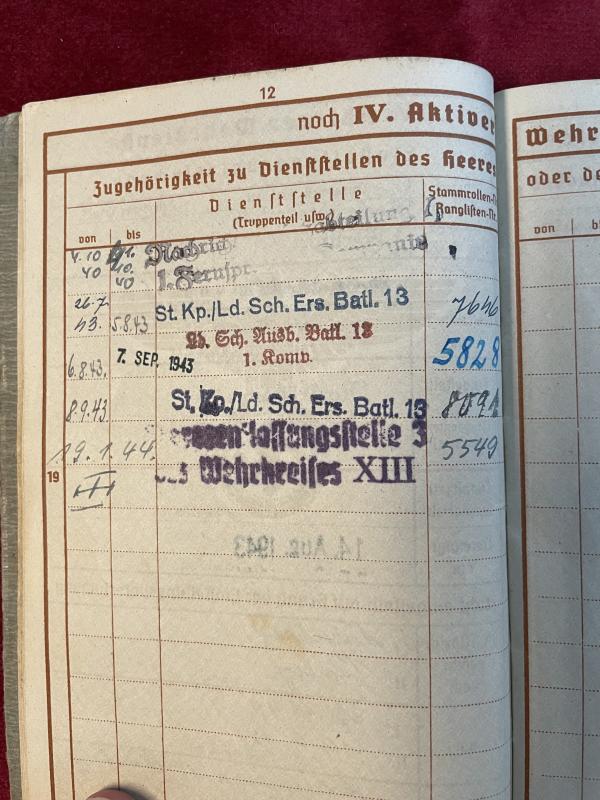 12
noch IV. Aktiver
Zugehörigkeit zu Dienststellen des Heeres
von
bis
Dienststelle
(Truppenteil usw.)
Stammrollen-
Ranglisten-Nr.
4.10
40
10.
40
abteilung
1. Fernspr.
26.7.
43.
5.8.43
St. Kp./Ld. Sch. Ers. Batl. 13
7646
6.8.43.
7. SEP. 1943
Ld. Sch. Ausb. Batl. 13
1. Komp.
5828
8.9.43
St. Kp./Ld. Sch. Ers. Batl. 13
19.1.44.
lassungsstelle 3
des Wehrkreises XIII
5549
19
14. Aug. 1943
Wehr
oder de
von
bis